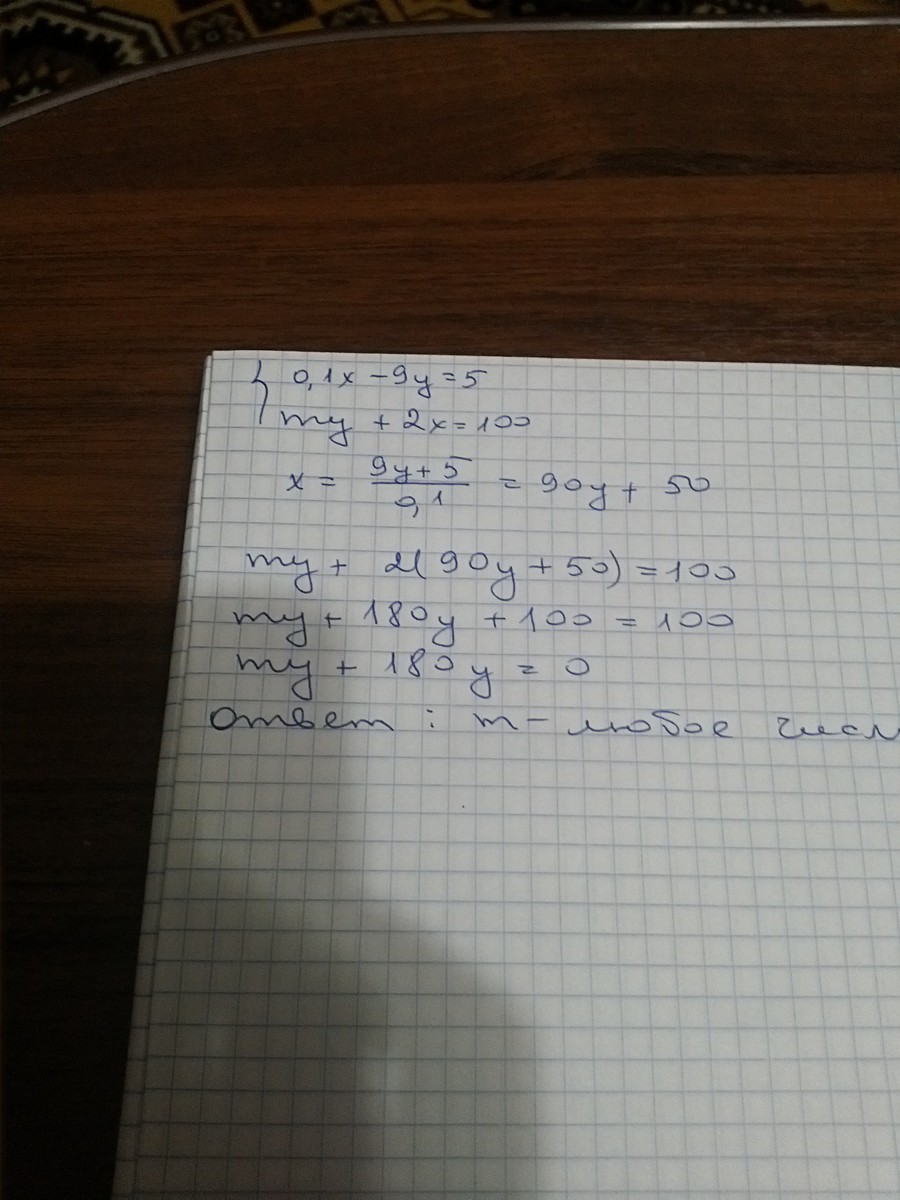 { 0,1x - 9y = 5
my + 2x = 100
x = \frac{9y + 5}{0,1} = 90y + 50
my + 2(90y + 50) = 100
my + 180y + 100 = 100
my + 180y = 0
Ответ : m - любое числ